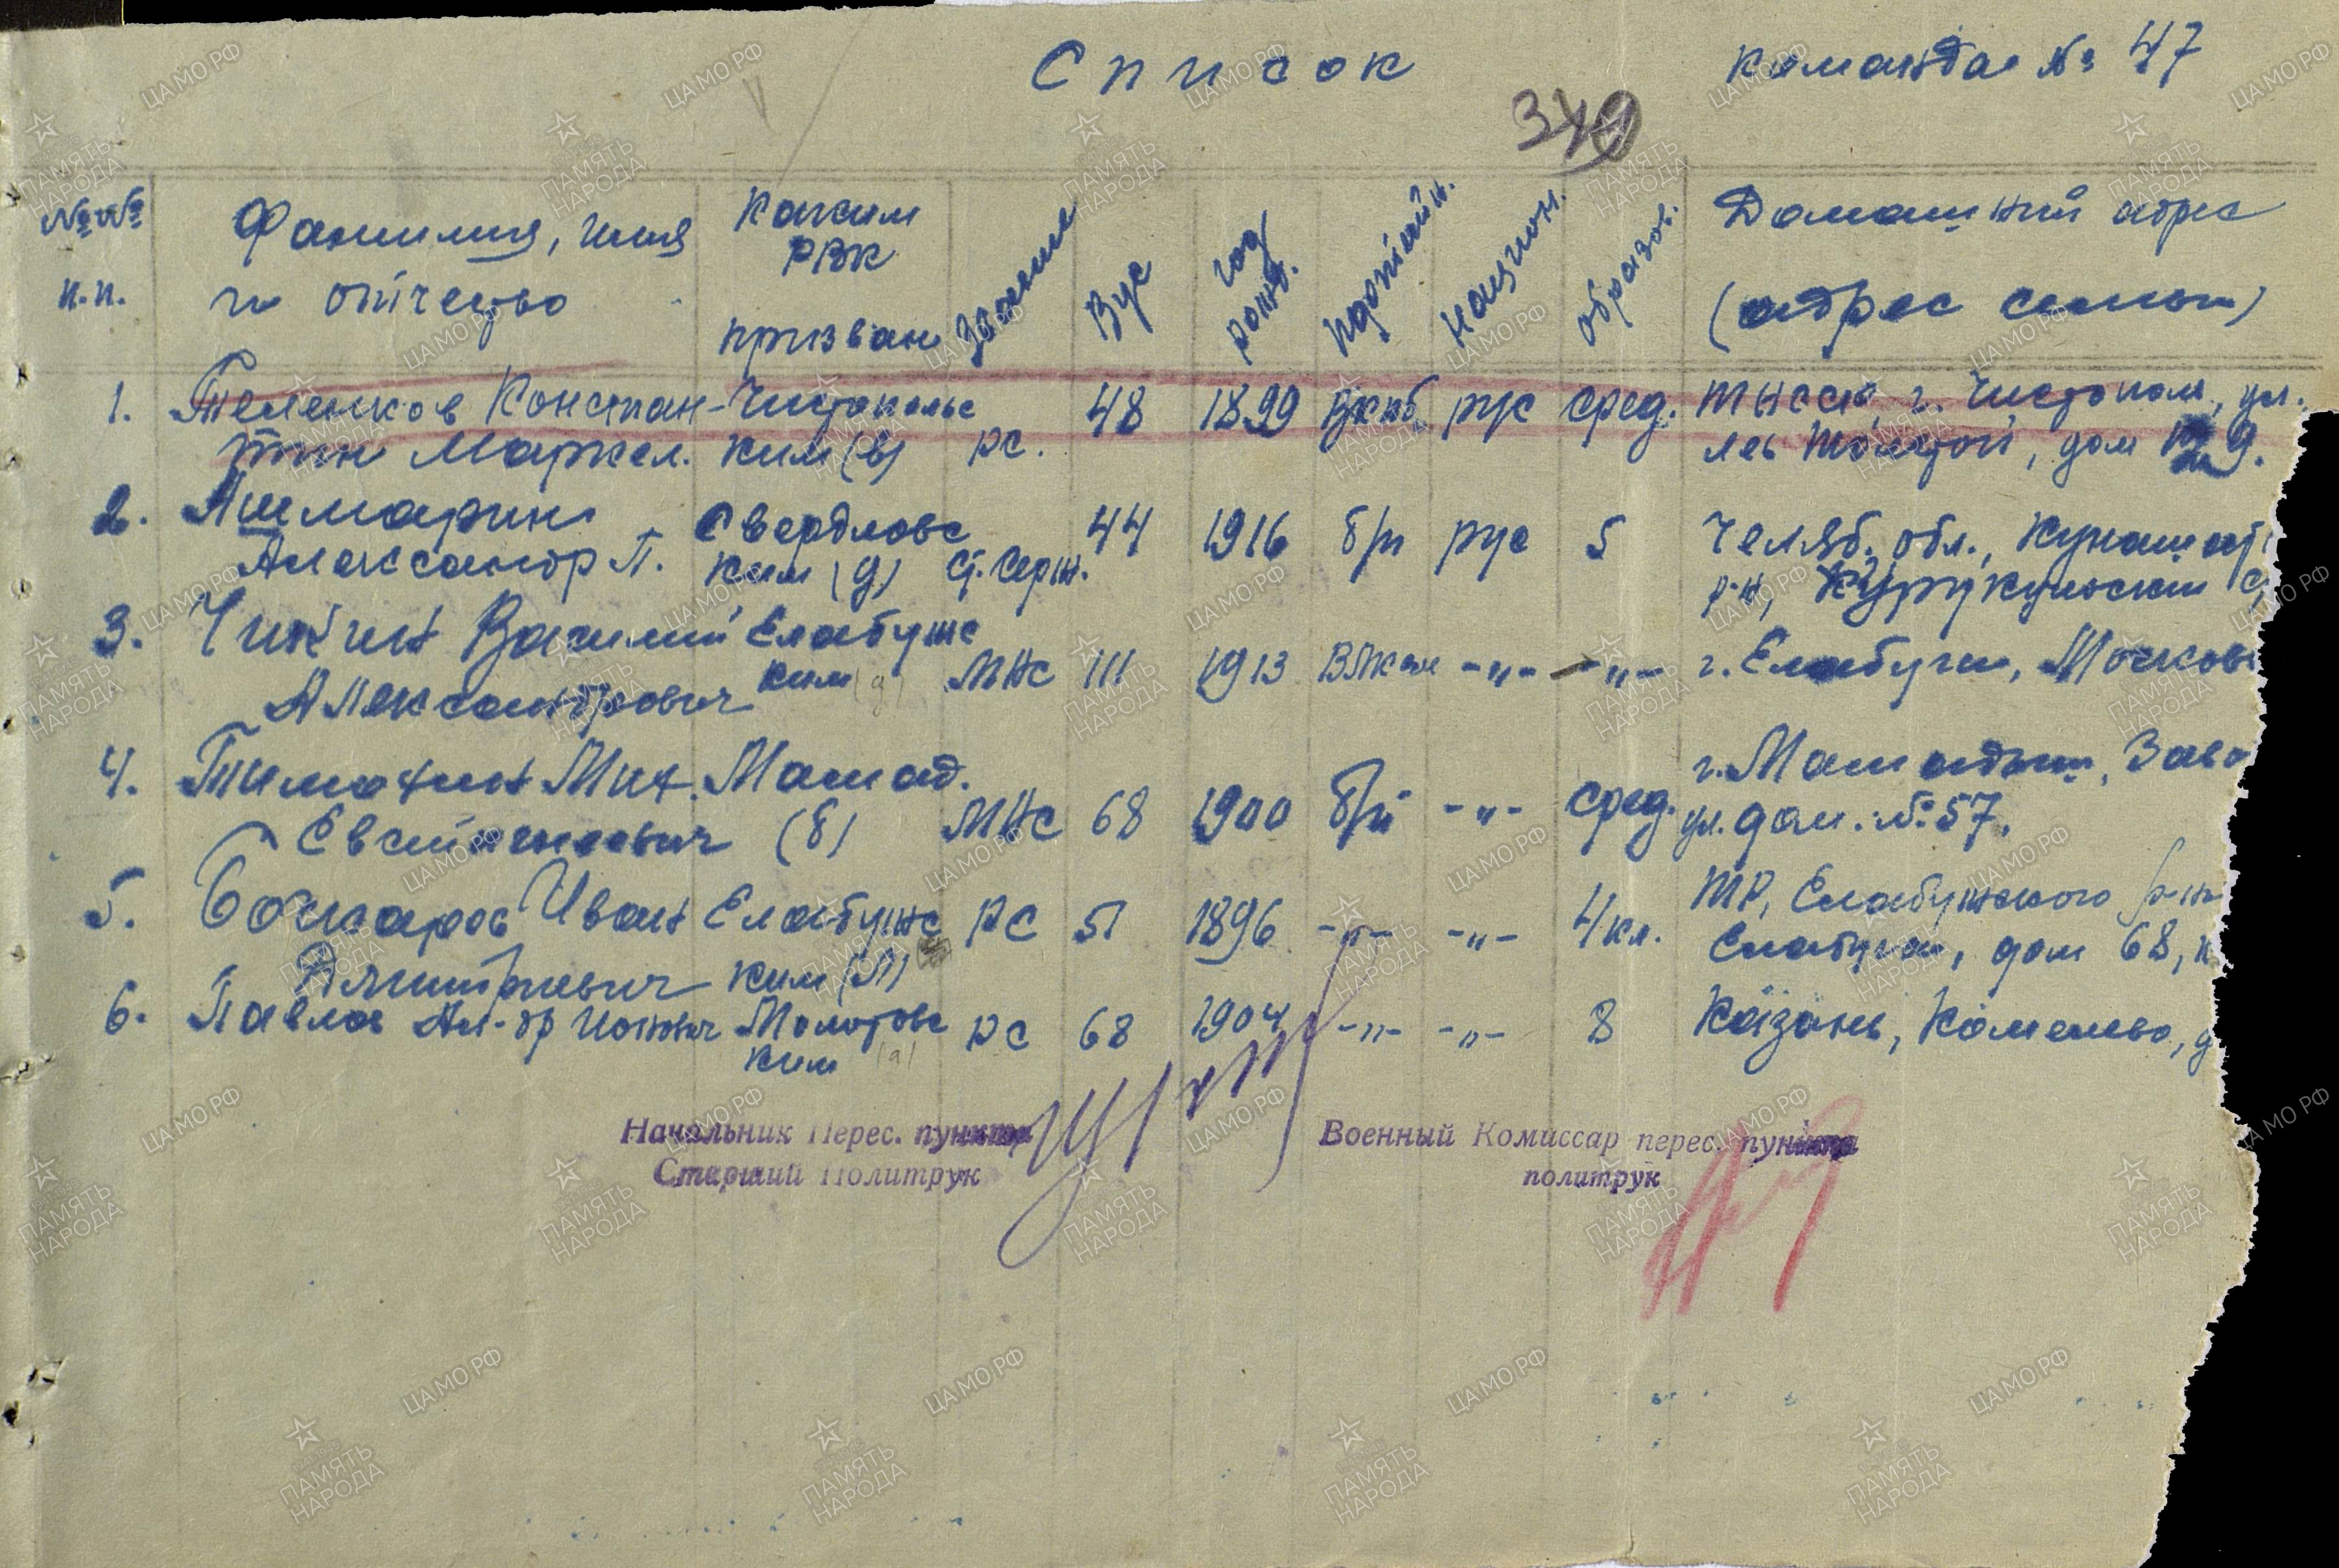 Список
команда № 47
349
№№ п.п.
Фамилия, имя и отчество
Каким РВК призван
Звание
Вус
год рожд.
партийн.
национ.
образов.
Домашний адрес (адрес семьи)
1. Теленков Констан- Чистопольс 48 1899 Вкпб рус сред. ТАССР, г. Чистополь, ул.
тин Маркел. ким (в) рс. Лев Толстой, дом 9.
2. Ашмарин Свердловс 44 1916 б/п рус 5 Челяб. обл., Кунашак
Александр П. ким (д) ст. серж. р-н,
3. Чикин Василий Елабужс
Александрович ким (д) МНС 111 1913 -"- -"- г. Елабуга, Москов
4. Тимофеин Мих. Мамад. г. Мамадыш, Заво
(б) МНС 68 1900 б/п -"- сред. ул. дом. № 57.
5. Бочкарев Иван Елабужс РС 51 1896 -"- -"- 4 кл. ТР, Елабужского р-н
Дмитриевич ким (Л) Елабуга, дом 68, к
6. Павлов Ал-др Молотовс РС 68 1904 -"- -"- 8 Казань, Комлева, д
ким (а)
Начальник Перес. пункта
Старший Политрук
Военный Комиссар перес. пункта
политрук
ПАМЯТЬ НАРОДА
ЦАМО РФ